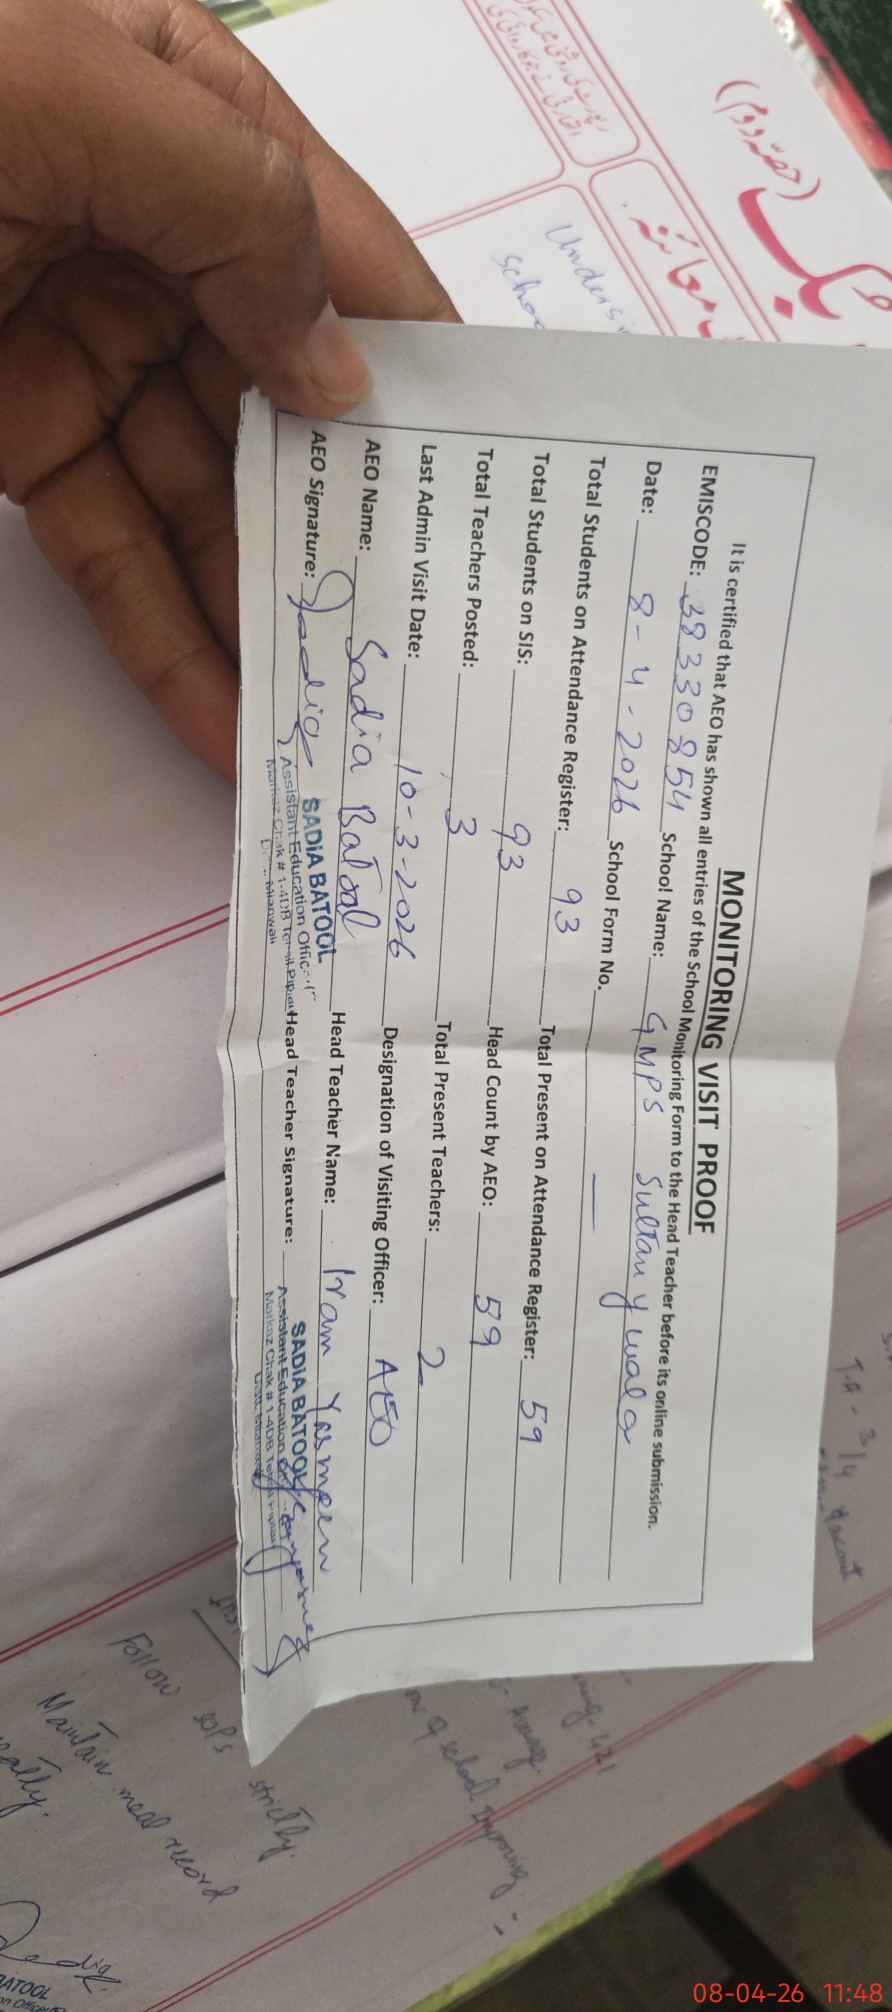 MONITORING VISIT PROOF
It is certified that AEO has shown all entries of the School Monitoring Form to the Head Teacher before its online submission.
EMISCODE: 38330854 School Name: GMPS Sultan y wala
Date: 8-4-2026 School Form No. —
Total Students on Attendance Register: 93 Total Present on Attendance Register: 59
Total Students on SIS: 93 Head Count by AEO: 59
Total Teachers Posted: 3 Total Present Teachers: 2
Last Admin Visit Date: 10-3-2026 Designation of Visiting Officer: AEO
AEO Name: Sadia Batool Head Teacher Name: Iram Yasmeen
AEO Signature: Sadia Head Teacher Signature:
SADiA BATOOL
Assistant Education
Markaz Chak # 1-4DB
Mianwali
SADiA BATOOL
Assistant Education
Markaz Chak # 1-4DB
(حصہ دوم)
معائنہ
T.A - 3/4
Follow SOPs strictly.
Maintain meal record
school improving
Sadia
BATOOL
08-04-26 11:48